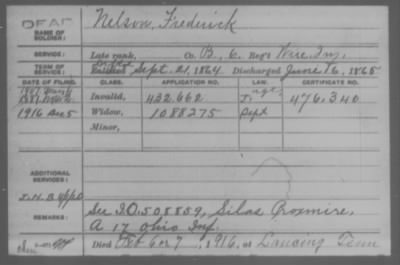 DEAF
Nelson, Frederick
NAME OF SOLDIER:
SERVICE:
Late rank, Co. B, 6 Reg't Wisc. Inf.
TERM OF SERVICE:
Enlisted Sept. 21, 1864 Discharged June 16, 1865
DATE OF FILING. CLASS. APPLICATION NO. LAW. CERTIFICATE NO.
Invalid, 432.662 476.340
1916 Dec 5 Widow, 1088275 Dept
Minor,
ADDITIONAL SERVICES:
REMARKS:
See I.O. 508859, Silas Proxmire,
A 17 Ohio Inf.
Died Feb 6 or 7, 1916, at Lancing Tenn